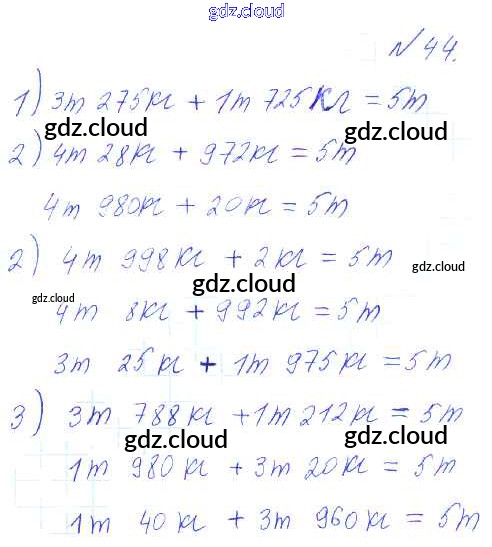 gdz.cloud
№ 44.
1) 3т 275кг + 1т 725кг = 5т
gdz.cloud
gdz.cloud
2) 4т 28кг + 972кг = 5т
4т 980кг + 20кг = 5т
2) 4т 998кг + 2кг = 5т
gdz.cloud
gdz.cloud
gdz.cloud
4т 8кг + 992кг = 5т
3т 25кг + 1т 975кг = 5т
3) 3т 788кг + 1т 212кг = 5т
gdz.cloud
gdz.cloud
1т 980кг + 3т 20кг = 5т
gdz.cloud
gdz.cloud
1т 40кг + 3т 960кг = 5т